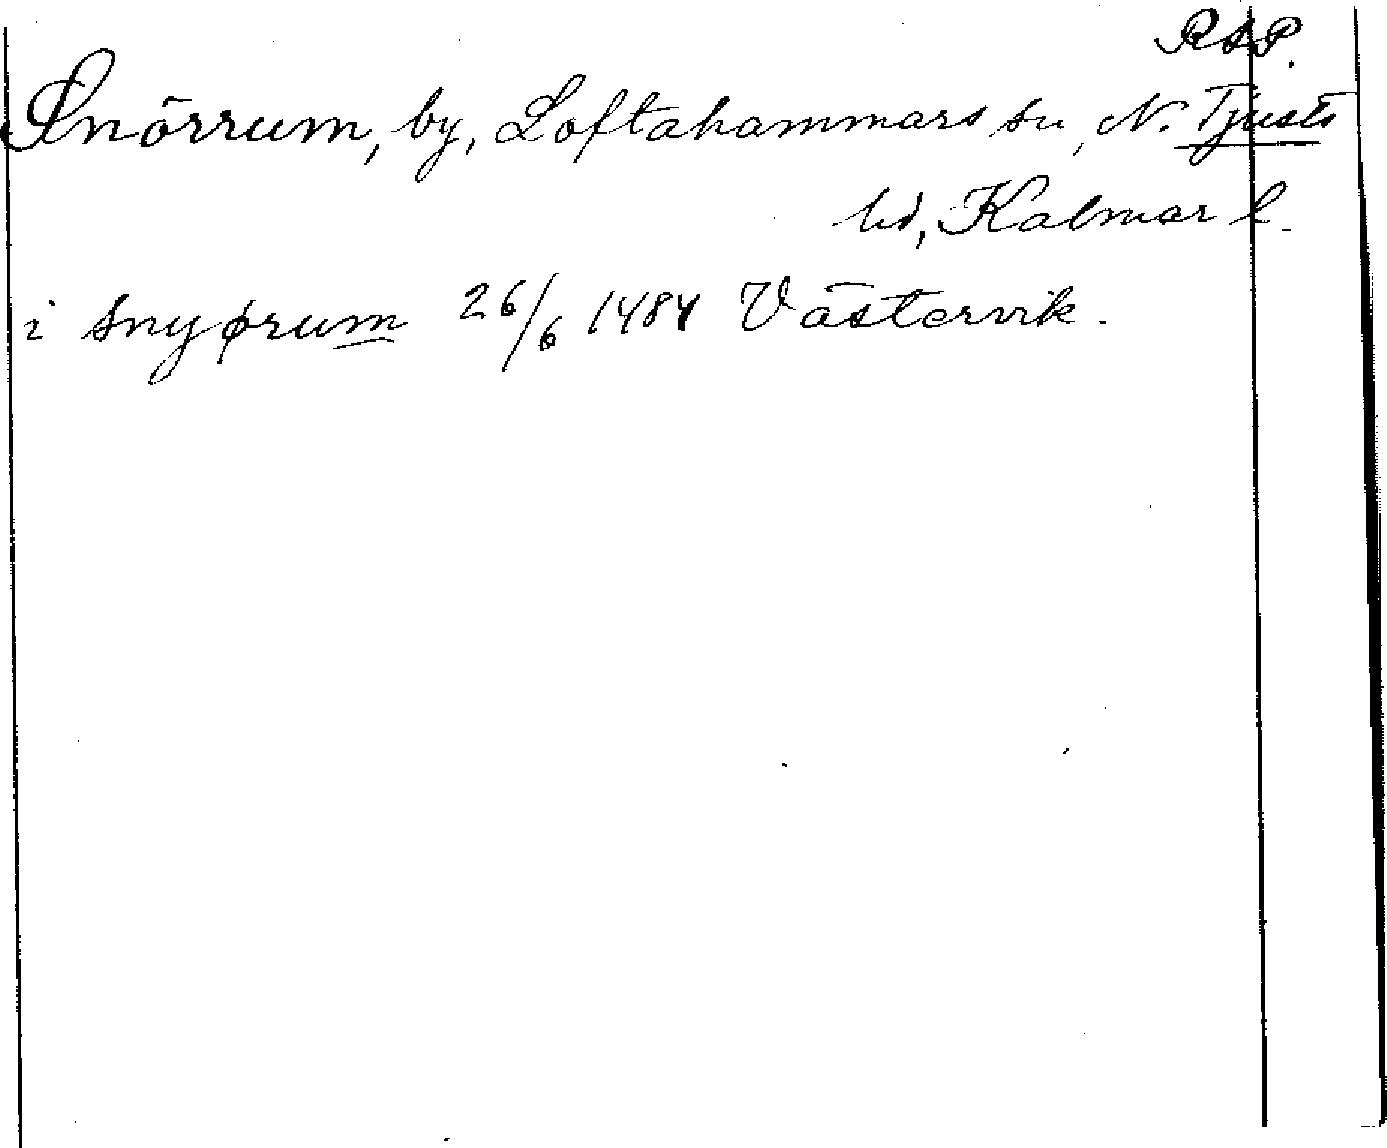 RAP.
Snörrum, by, Loftahammars sn, N. Tjusts
hd, Kalmar l.
i snyørum 26/6 1484 Västervik.